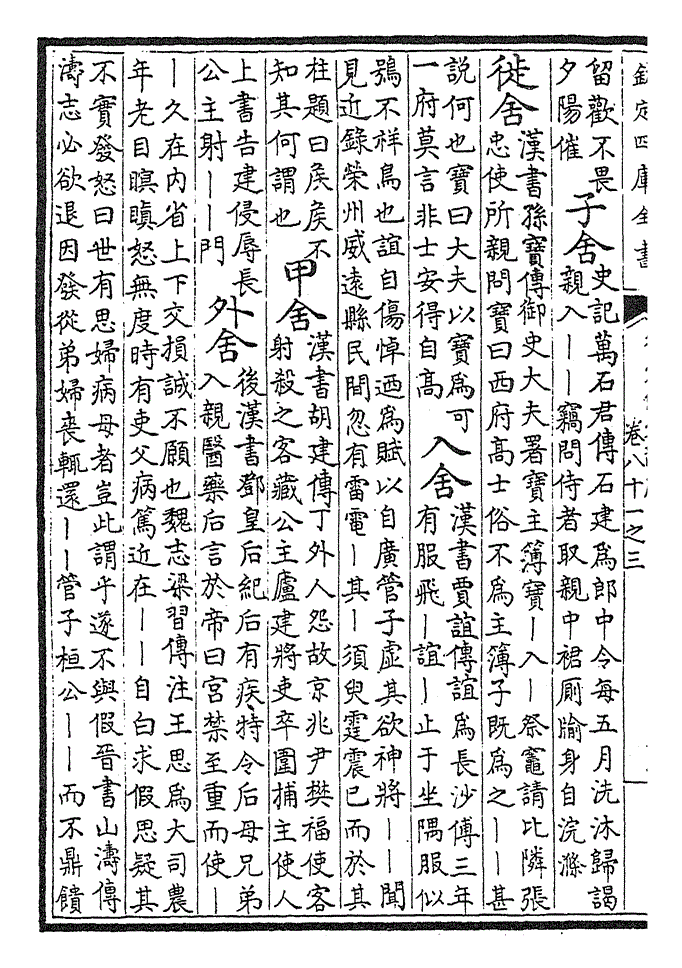 欽定四庫全書
卷八十一之三
留歡不畏
夕陽催
子舍
史記萬石君傳石建為郎中令每五月洗沐歸謁
親入丨丨竊問侍者取親中裙厠牏身自浣滌
徙舍
漢書孫寶傳御史大夫署寶主簿寶丨入丨祭竈請比隣張
忠使所親問寶曰西府高士俗不為主簿子既為之丨丨甚
說何也寶曰大夫以寶為可
一府莫言非士安得自高
入舍
漢書賈誼傳誼為長沙傅三年
有服飛丨誼丨止于坐隅服似
鴞不祥鳥也誼自傷悼迺為賦以自廣管子虛其欲神將丨丨聞
見近錄榮州威遠縣民間忽有雷電丨其丨須臾霆震已而於其
柱題曰矦矦不
知其何謂也
甲舍
漢書胡建傳丁外人怨故京兆尹樊福使客
射殺之客藏公主廬建將吏卒圍捕主使人
上書告建侵辱長
公主射丨丨門
外舍
後漢書鄧皇后紀后有疾特令后母兄弟
入親醫藥后言於帝曰宮禁至重而使丨
丨久在內省上下交損誠不願也魏志梁習傳注王思為大司農
年老目瞑瞋怒無度時有吏父病篤近在丨丨自白求假思疑其
不實發怒曰世有思婦病母者豈此謂乎遂不與假晉書山濤傳
濤志必欲退因發從弟婦喪輒還丨丨管子桓公丨丨而不鼎饋